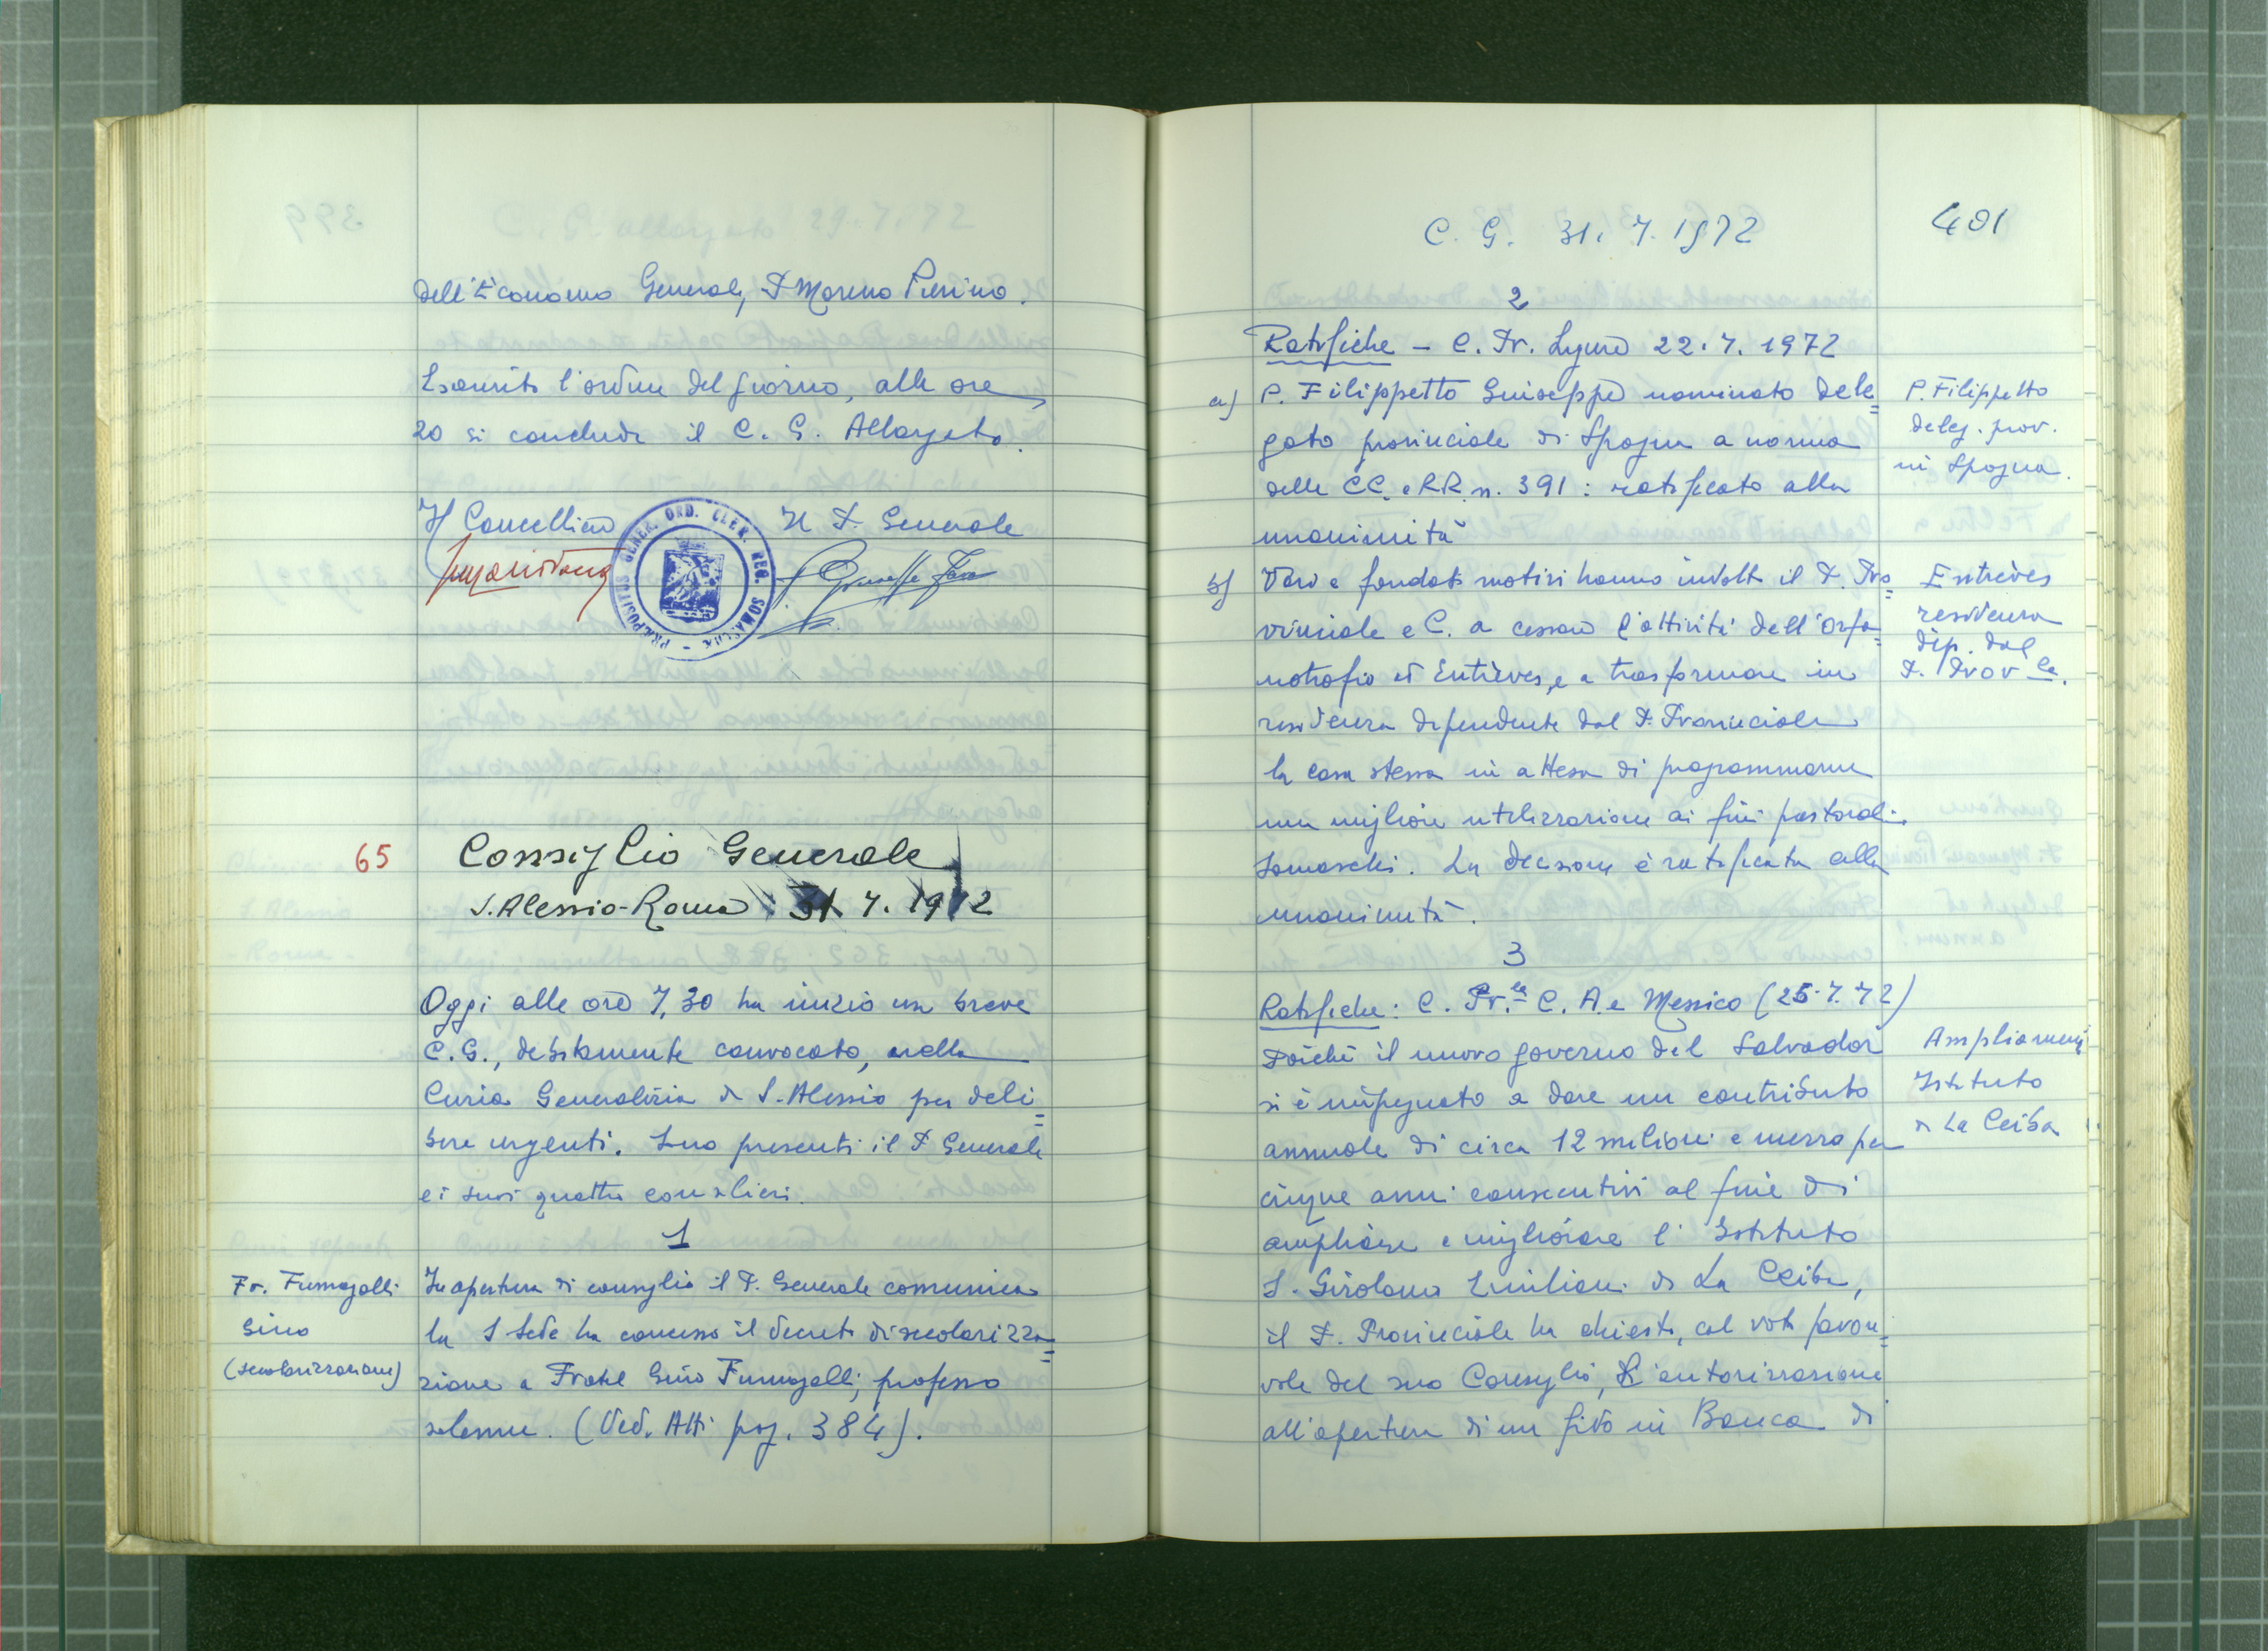 dell'Economo Generale, P. Moreno Pierino.
Esaurito l'ordine del giorno, alle ore
20 si conclude il C. G. Allargato.
Il Cancelliere
Il P. Generale
PRÆPOSITUS GENER. ORD. CLER. REG. SOMASCHA
65
Consiglio Generale
S. Alessio - Roma: 31. 7. 1972
Oggi alle ore 7,30 ha inizio un breve
C.G., debitamente convocato, nella
Curia Generalizia di S. Alessio per deli=
bere urgenti. Sono presenti il P. Generale
e i suoi quattro consiglieri.
1
Fr. Fumagalli
Gino
(secolarizzazione)
In apertura di consiglio il P. Generale comunica
la S. Sede ha concesso il decreto di secolarizza=
zione a Fratel Gino Fumagalli, professo
solenne. (Ved. Atti pag. 384).
C. G. 31. 7. 1972
401
2
Ratifiche - C. Pr. Ligure 22. 7. 1972
a) P. Filippetto Giuseppe nominato dele=
gato provinciale di Spagna a norma
delle CC. e RR. n. 391: ratificato alla
unanimità
P. Filippetto
deleg. prov.
in Spagna.
b) Vari e fondati motivi hanno indotto il P. Pro=
vinciale e C. a cessare l'attività dell'Orfa=
notrofio di Entrèves, e a trasformare in
residenza dipendente dal P. Provinciale
la casa stessa in attesa di programmarne
una migliore utilizzazione ai fini pastorali
somaschi. La decisione è ratificata alla
unanimità.
Entrèves
residenza
dip. dal
P. Prov.le
3
Ratifiche: C. Pr.le C. A. e Messico (25. 7. 72)
Poiché il nuovo governo del Salvador
si è impegnato a dare un contributo
annuale di circa 12 milioni e mezzo per
cinque anni consecutivi al fine di
ampliare e migliorare l'Istituto
S. Girolamo Emiliani di La Ceiba,
il P. Provinciale ha chiesto, col voto favore=
vole del suo Consiglio, l'autorizzazione
all'apertura di un fido in Banca di
Ampliamenti
Istituto
di La Ceiba